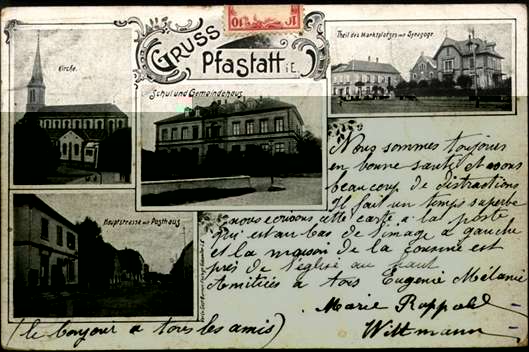 10 10
GRUSS
Pfastatt i.E.
Kirche.
Schul und Gemeindehaus
Theil des Marktplatzes mit Synagoge.
Hauptstrasse mit Posthaus
Nous sommes toujours
en bonne santé et avons
beaucoup de distractions
Il fait un temps superbe
nous ecrivons cette carte a la poste
qui est au bas de l'image a gauche
et la maison de la cousine est
près de l'église au haut
Amitiées a tois Eugenie Mélanie
Marie Ruppold
Wittmann
(le bonjour a tous les amis)